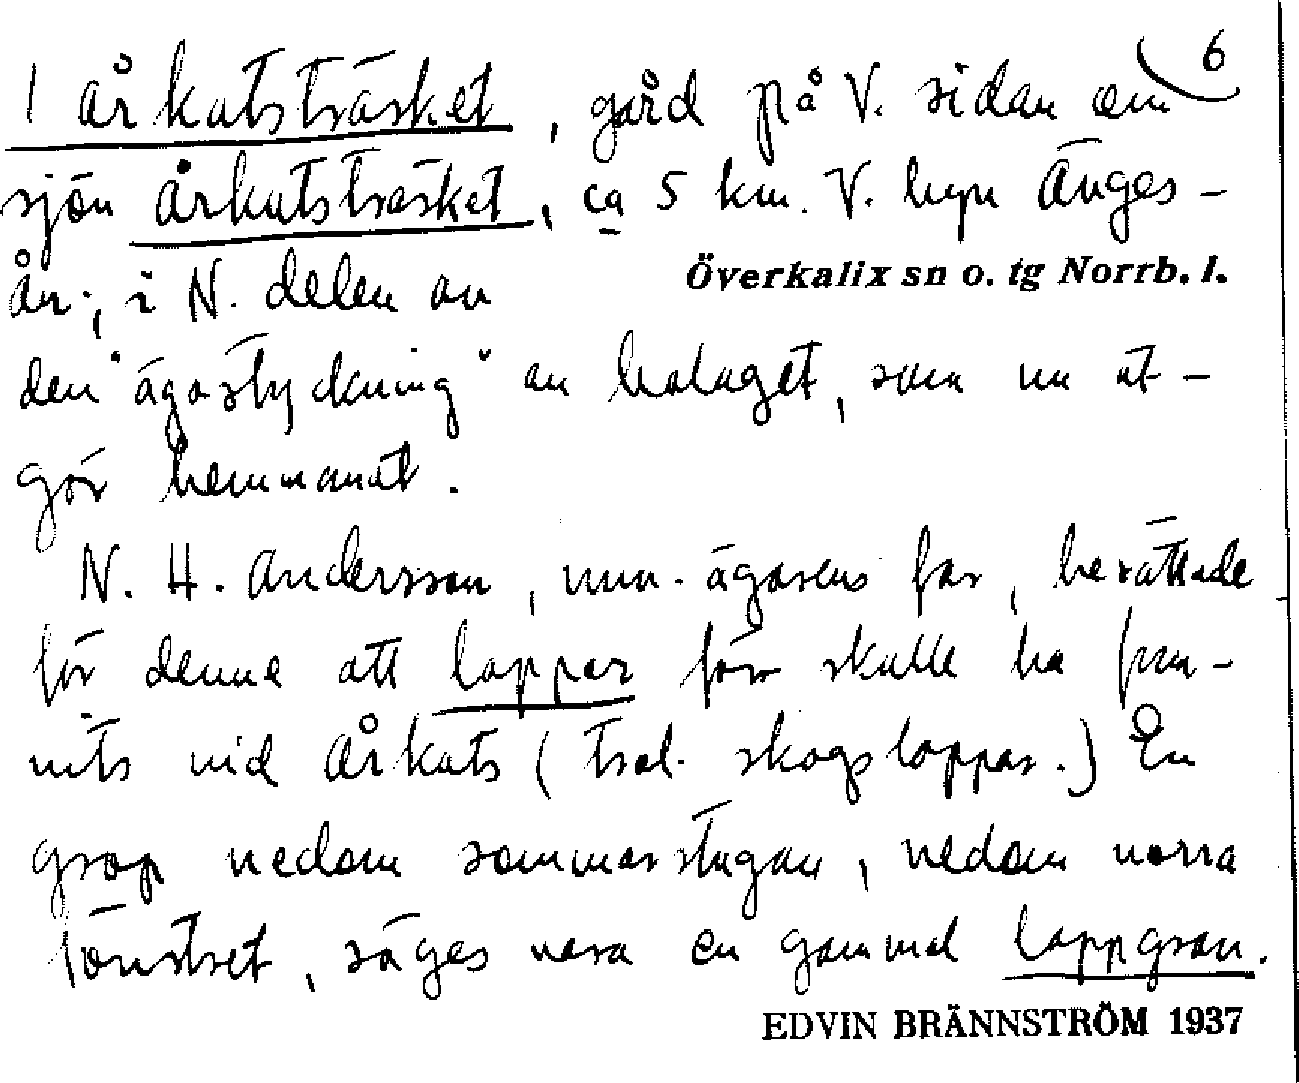 6
1 Årkatsträsket, gård på V. sidan om
sjön Årkatsträsket, ca 5 km. V. byn Änges-
ån; i N. delen av
Överkalix sn o. tg Norrb. l.
den "ägostyckning" av bolaget, som nu ut-
gör hemmanet.
N. H. Andersson, nuv. ägarens far, berättade
för denne att lappar förr skulle ha fun-
nits vid Årkats (trol. skogslappar.) En
grop nedom sommarstugan, nedom norra
fönstret, säges vara en gammal lappgrav.
EDVIN BRÄNNSTRÖM 1937